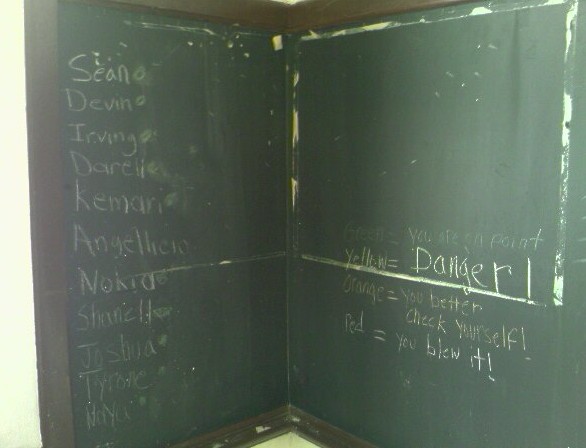 Sean
Devin
Irving
Darell
Kemari
Angellicia
Nokia
Joshua
Tyrone
Green = You are on point
Yellow = Danger!
Orange = You better
check yourself!
Red = you blew it!